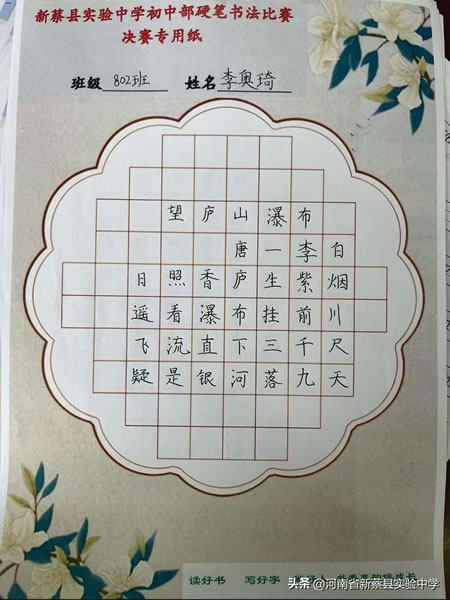 新蔡县实验中学初中部硬笔书法比赛
决赛专用纸
班级 802班 姓名 李奥琦
望庐山瀑布
唐一李白
日照香庐生紫烟
遥看瀑布挂前川
飞流直下三千尺
疑是银河落九天
读好书 写好字
头条@河南省新蔡县实验中学